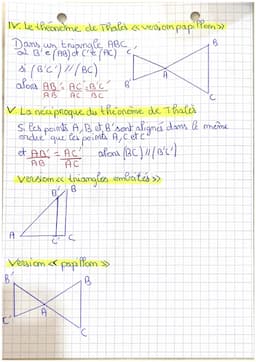 IV. Le théorème de Thalès « version papillon »
Dans un triangle ABC
où B' ∈ (AB) et C' ∈ (AC)
si (B'C') // (BC)
alors AB'/AB = AC'/AC = B'C'/BC
C'
B
A
B'
C
V. La réciproque du théorème de Thalès
Si les points A, B et B' sont alignés dans le même
ordre que les points A, C et C'
et AB'/AB = AC'/AC alors (BC) // (B'C')
Version « triangles emboîtés »
B'
B
A
C'
C
Version « papillon »
B'
B
A
C'
C